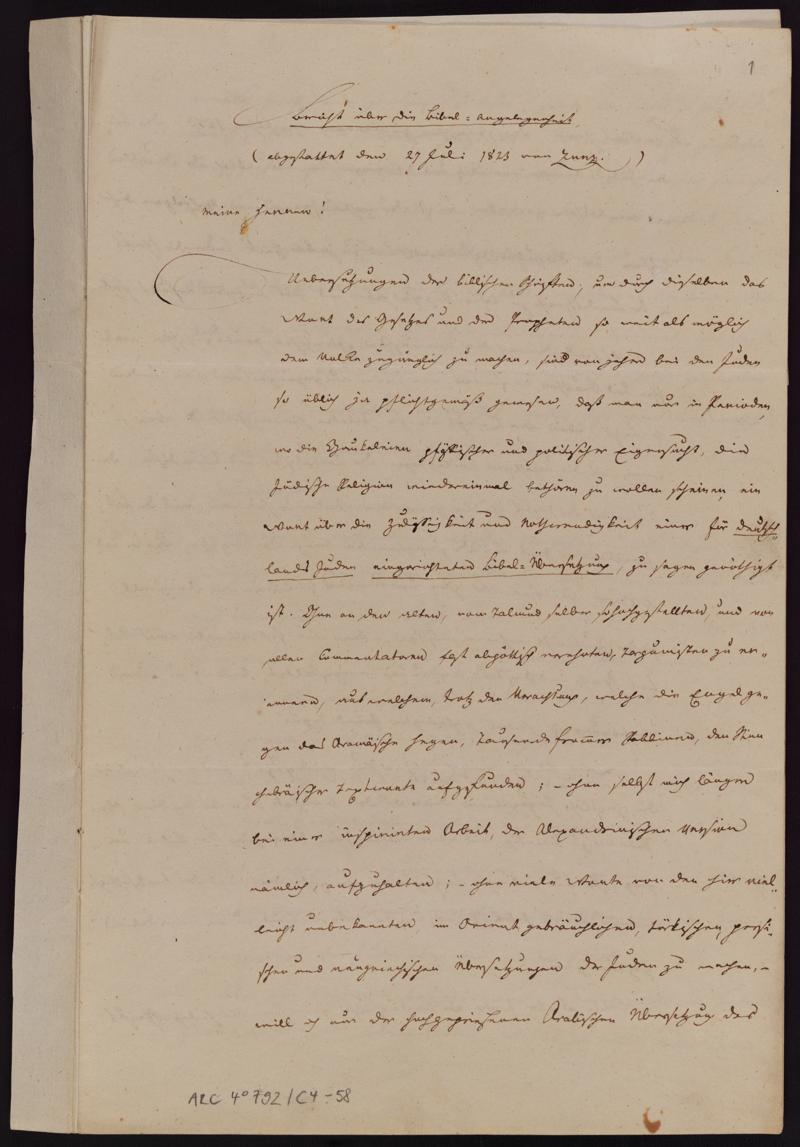 1
Bericht über die Bibel=Angelegenheit
(abgestattet den 27 Juli 1823 von Zunz.)
Meine Herren!
Uebersetzungen der biblischen Schriften, um durch dieselben das
Wort des Gesetzes und der Propheten so weit als möglich
dem Volke zugänglich zu machen, sind von jeher bei den Juden
so üblich ja pflichtgemäß gewesen, daß man nur in Perioden,
wo die Gaukeleien physischer und politischer Eigensucht, die
Jüdische Religion wiedereinmal bethören zu wollen scheinen, ein
Wort über die Zulässigkeit und Nothwendigkeit einer für Deutsch-
lands Juden eingerichteten Bibel=Übersetzung, zu sagen genöthigt
ist. Ohne an den alten, vom Talmud selber so hochgestellten, und von
allen Commentatoren fast abgöttisch verehrten, Targumisten zu er-
innern, aus welchem, trotz der Verachtung, welche die Engel ge-
gen das Aramäische hegen, Tausende frommer Rabbinen, den Sinn
hebräischer Textworte aufgefunden; – ohne selbst mich länger
bei einer inspirirten Arbeit, der Alexandrinischen Version
nämlich, aufzuhalten; – ohne viele Worte von den hier viel-
leicht unbekannten im Orient gebräuchlichen, türkischen, persi-
schen und neugriechischen Übersetzungen der Juden zu machen, –
will ich nur der hochgepriesenen Arabischen Übersetzung des
ARC 4° 792/C4-58